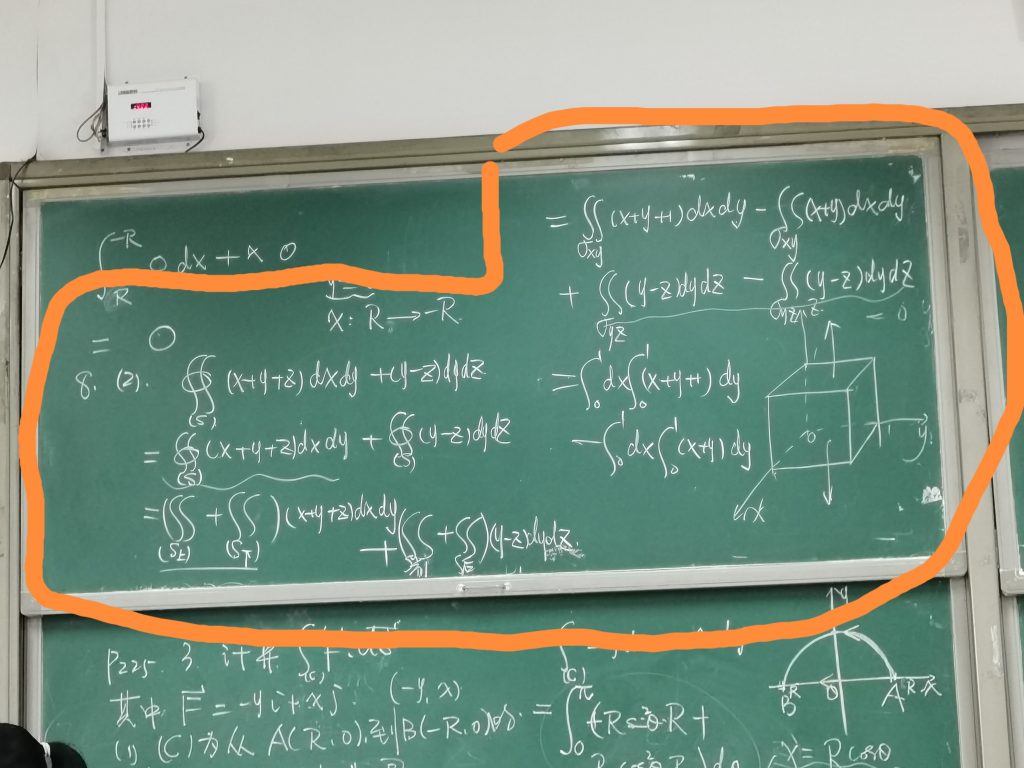 ∫_R^{-R} 0 dx + 4 0
x: R → -R
= 0
8. (2). ∯_(S) (x+y+z)dxdy + (y-z)dydz
= ∯_(S) (x+y+z)dxdy + ∯_(S) (y-z)dydz
= (∬_(S上) + ∬_(S下)) (x+y+z)dxdy
+ (∬ + ∬)(y-z)dydz.
= ∬_σxy (x+y+1)dxdy - ∬_σxy (x+y)dxdy
+ ∬_σyz (y-z)dydz - ∬_σyz (y-z)dydz
= 0
= ∫_0^1 dx ∫_0^1 (x+y+1) dy
- ∫_0^1 dx ∫_0^1 (x+y) dy
z
0
1
y
x
P225. 3. 计算 ∫_(C)
其中 F⃗ = -yi + xj. (-y, x)
(1) (C)为从 A(R,0)到B(-R,0)的
∫_(C)
= ∫_0^π
y
B
-R
0
A
R
x
x = Rcosθ